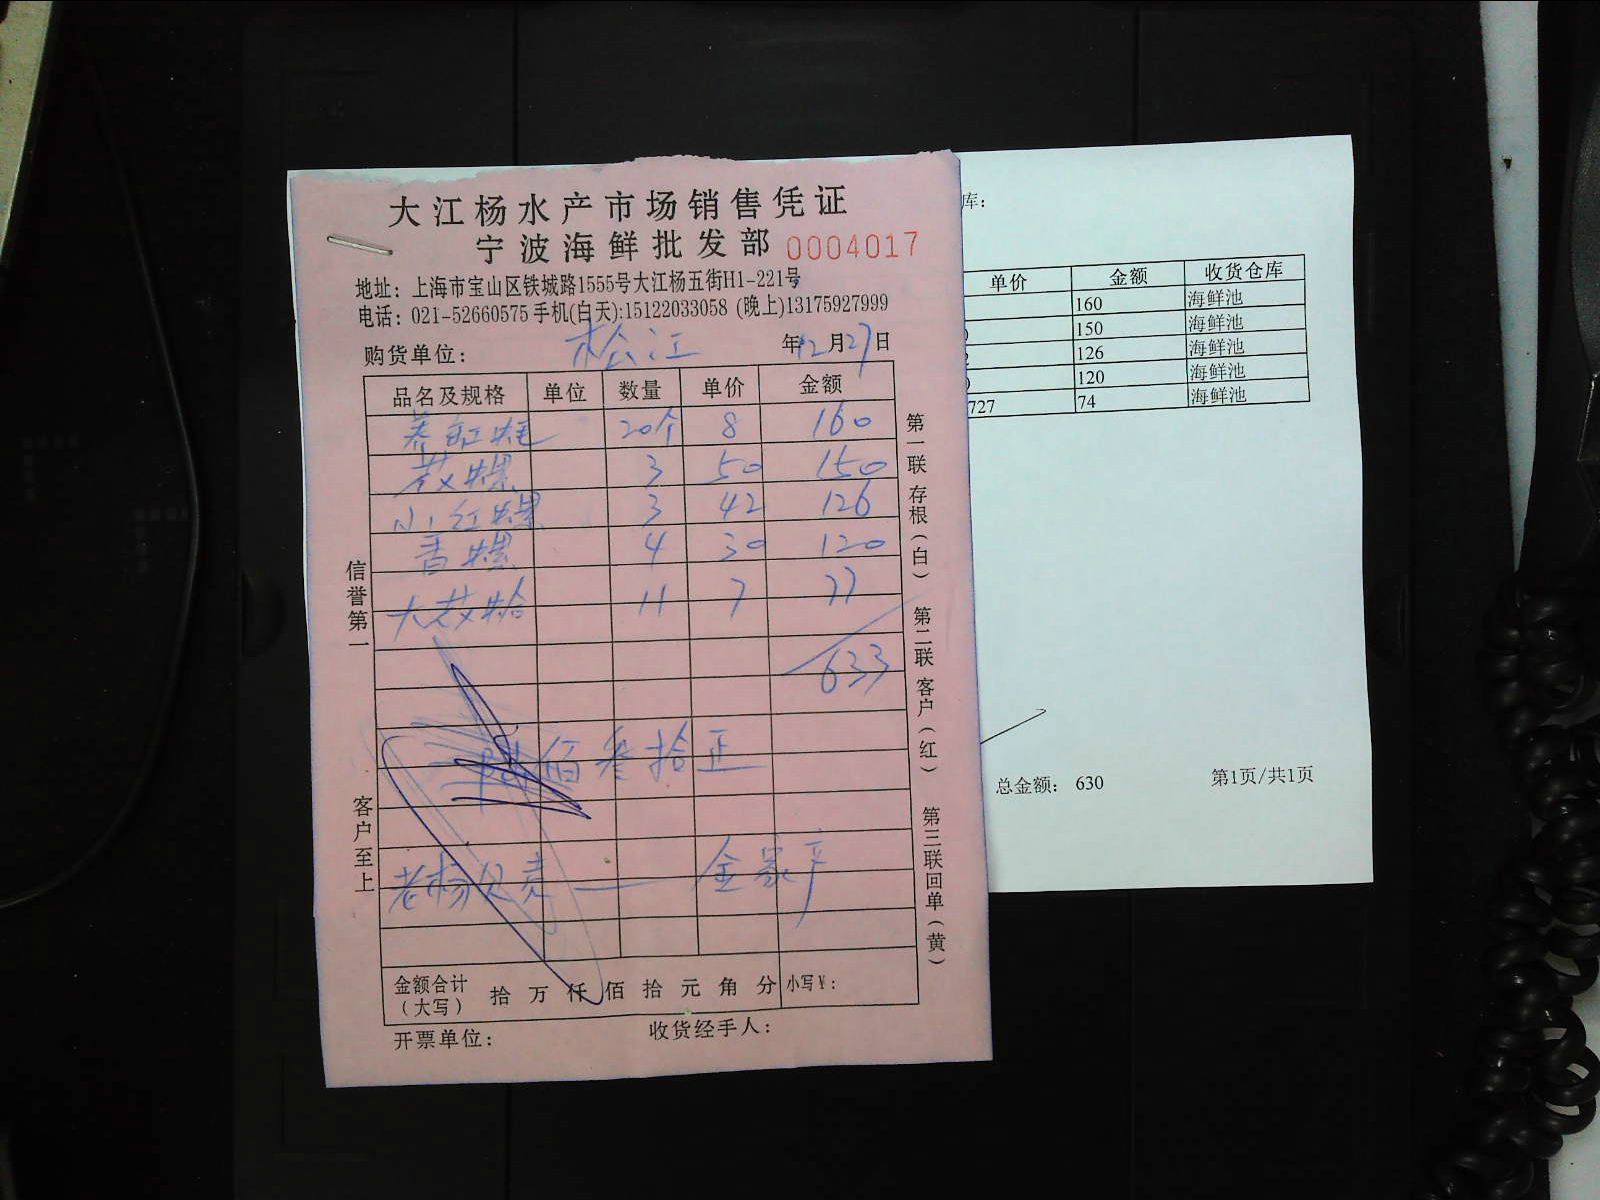 大江杨水产市场销售凭证
宁波海鲜批发部 0004017
地址：上海市宝山区铁城路1555号大江杨五街H1-221号
电话：021-52660575 手机(白天):15122033058 (晚上)13175927999
购货单位： 松江 年12月27日
品名及规格 单位 数量 单价 金额
20个 8 160
花螺 3 50 150
小红螺 3 42 126
香螺 4 30 120
大花蛤 11 7 77
633
陆佰叁拾正
老杨贝壳 — 金家
金额合计（大写） 拾 万 仟 佰 拾 元 角 分 小写￥：
开票单位： 收货经手人：
信誉第一
客户至上
第一联 存根（白）
第二联 客户（红）
第三联 回单（黄）
库：
单价 金额 收货仓库
160 海鲜池
150 海鲜池
2 126 海鲜池
120 海鲜池
727 74 海鲜池
总金额： 630 第1页/共1页